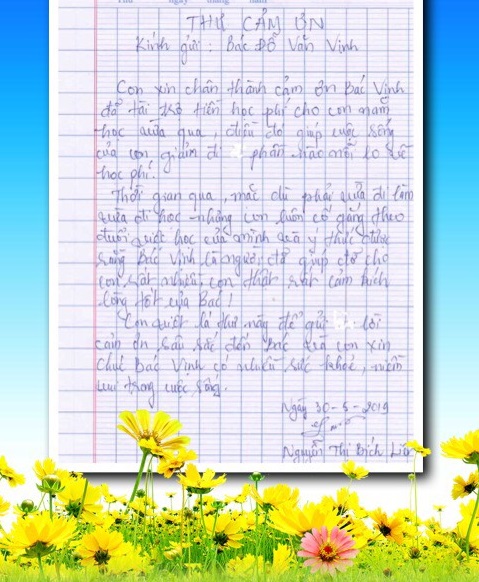 Thứ ngày tháng năm
THƯ CẢM ƠN
Kính gửi : Bác Đỗ Văn Vinh
Con xin chân thành cảm ơn Bác Vinh
đã tài trợ tiền học phí cho con năm
học vừa qua, điều đó giúp cuộc sống
của con giảm đi phần nào nỗi lo về
học phí.
Thời gian qua, mặc dù phải vừa đi làm
vừa đi học nhưng con luôn cố gắng theo
đuổi việc học của mình và ý thức được
rằng Bác Vinh là người đã giúp đỡ cho
con rất nhiều, con thật rất cảm kích
lòng tốt của Bác!
Con viết lá thư này để gửi lời
cảm ơn sâu sắc đến Bác và con xin
chúc Bác Vinh có nhiều sức khỏe, niềm
vui trong cuộc sống.
Ngày 30-5-2019
Nguyễn Thị Bích